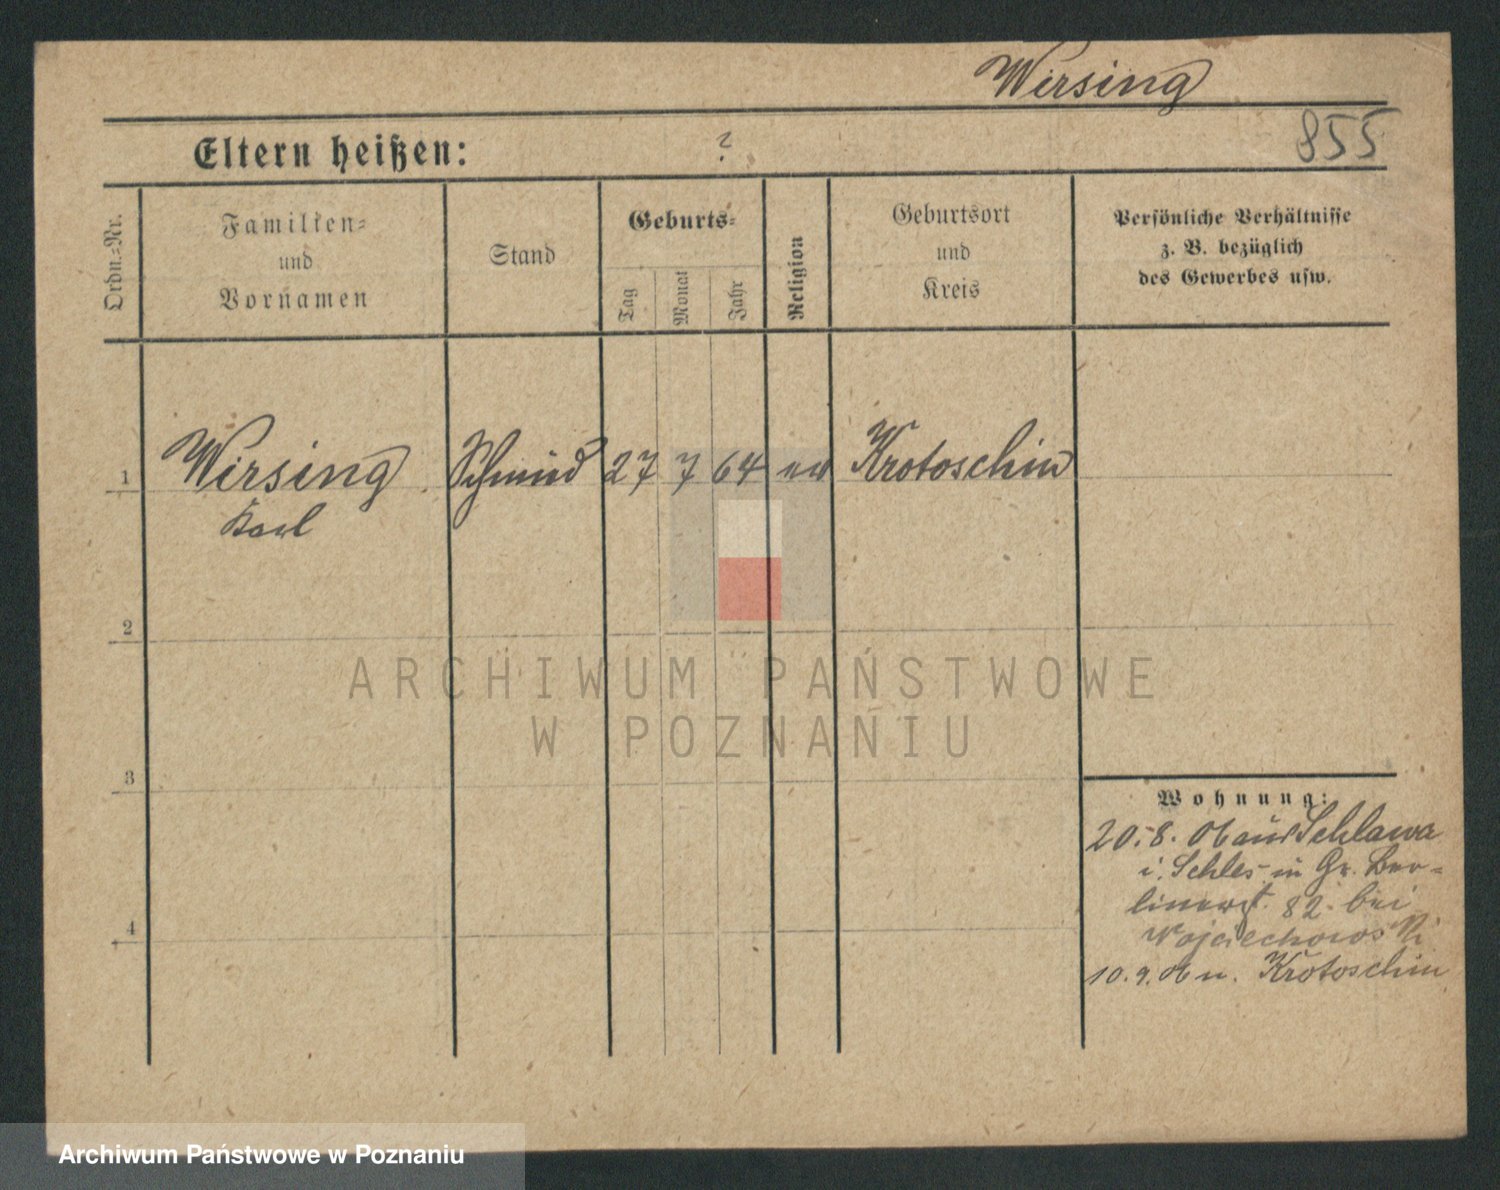 Wirsing
Eltern heißen: ?
855
Ordn.-Nr.
Familien-
und
Vornamen
Stand
Geburts-
Tag
Monat
Jahr
Religion
Geburtsort
und
Kreis
Persönliche Verhältnisse
z. B. bezüglich
des Gewerbes usw.
1 Wirsing Schmied 27 7 64 ev Krotoschin
Karl
2
3
4
Wohnung:
20.8.06 aus Schlawa
i. Schles in Gr. Ber-
linerst. 82 bei
Wojciechowski
10.9.06 n. Krotoschin
ARCHIWUM PAŃSTWOWE
W POZNANIU
Archiwum Państwowe w Poznaniu